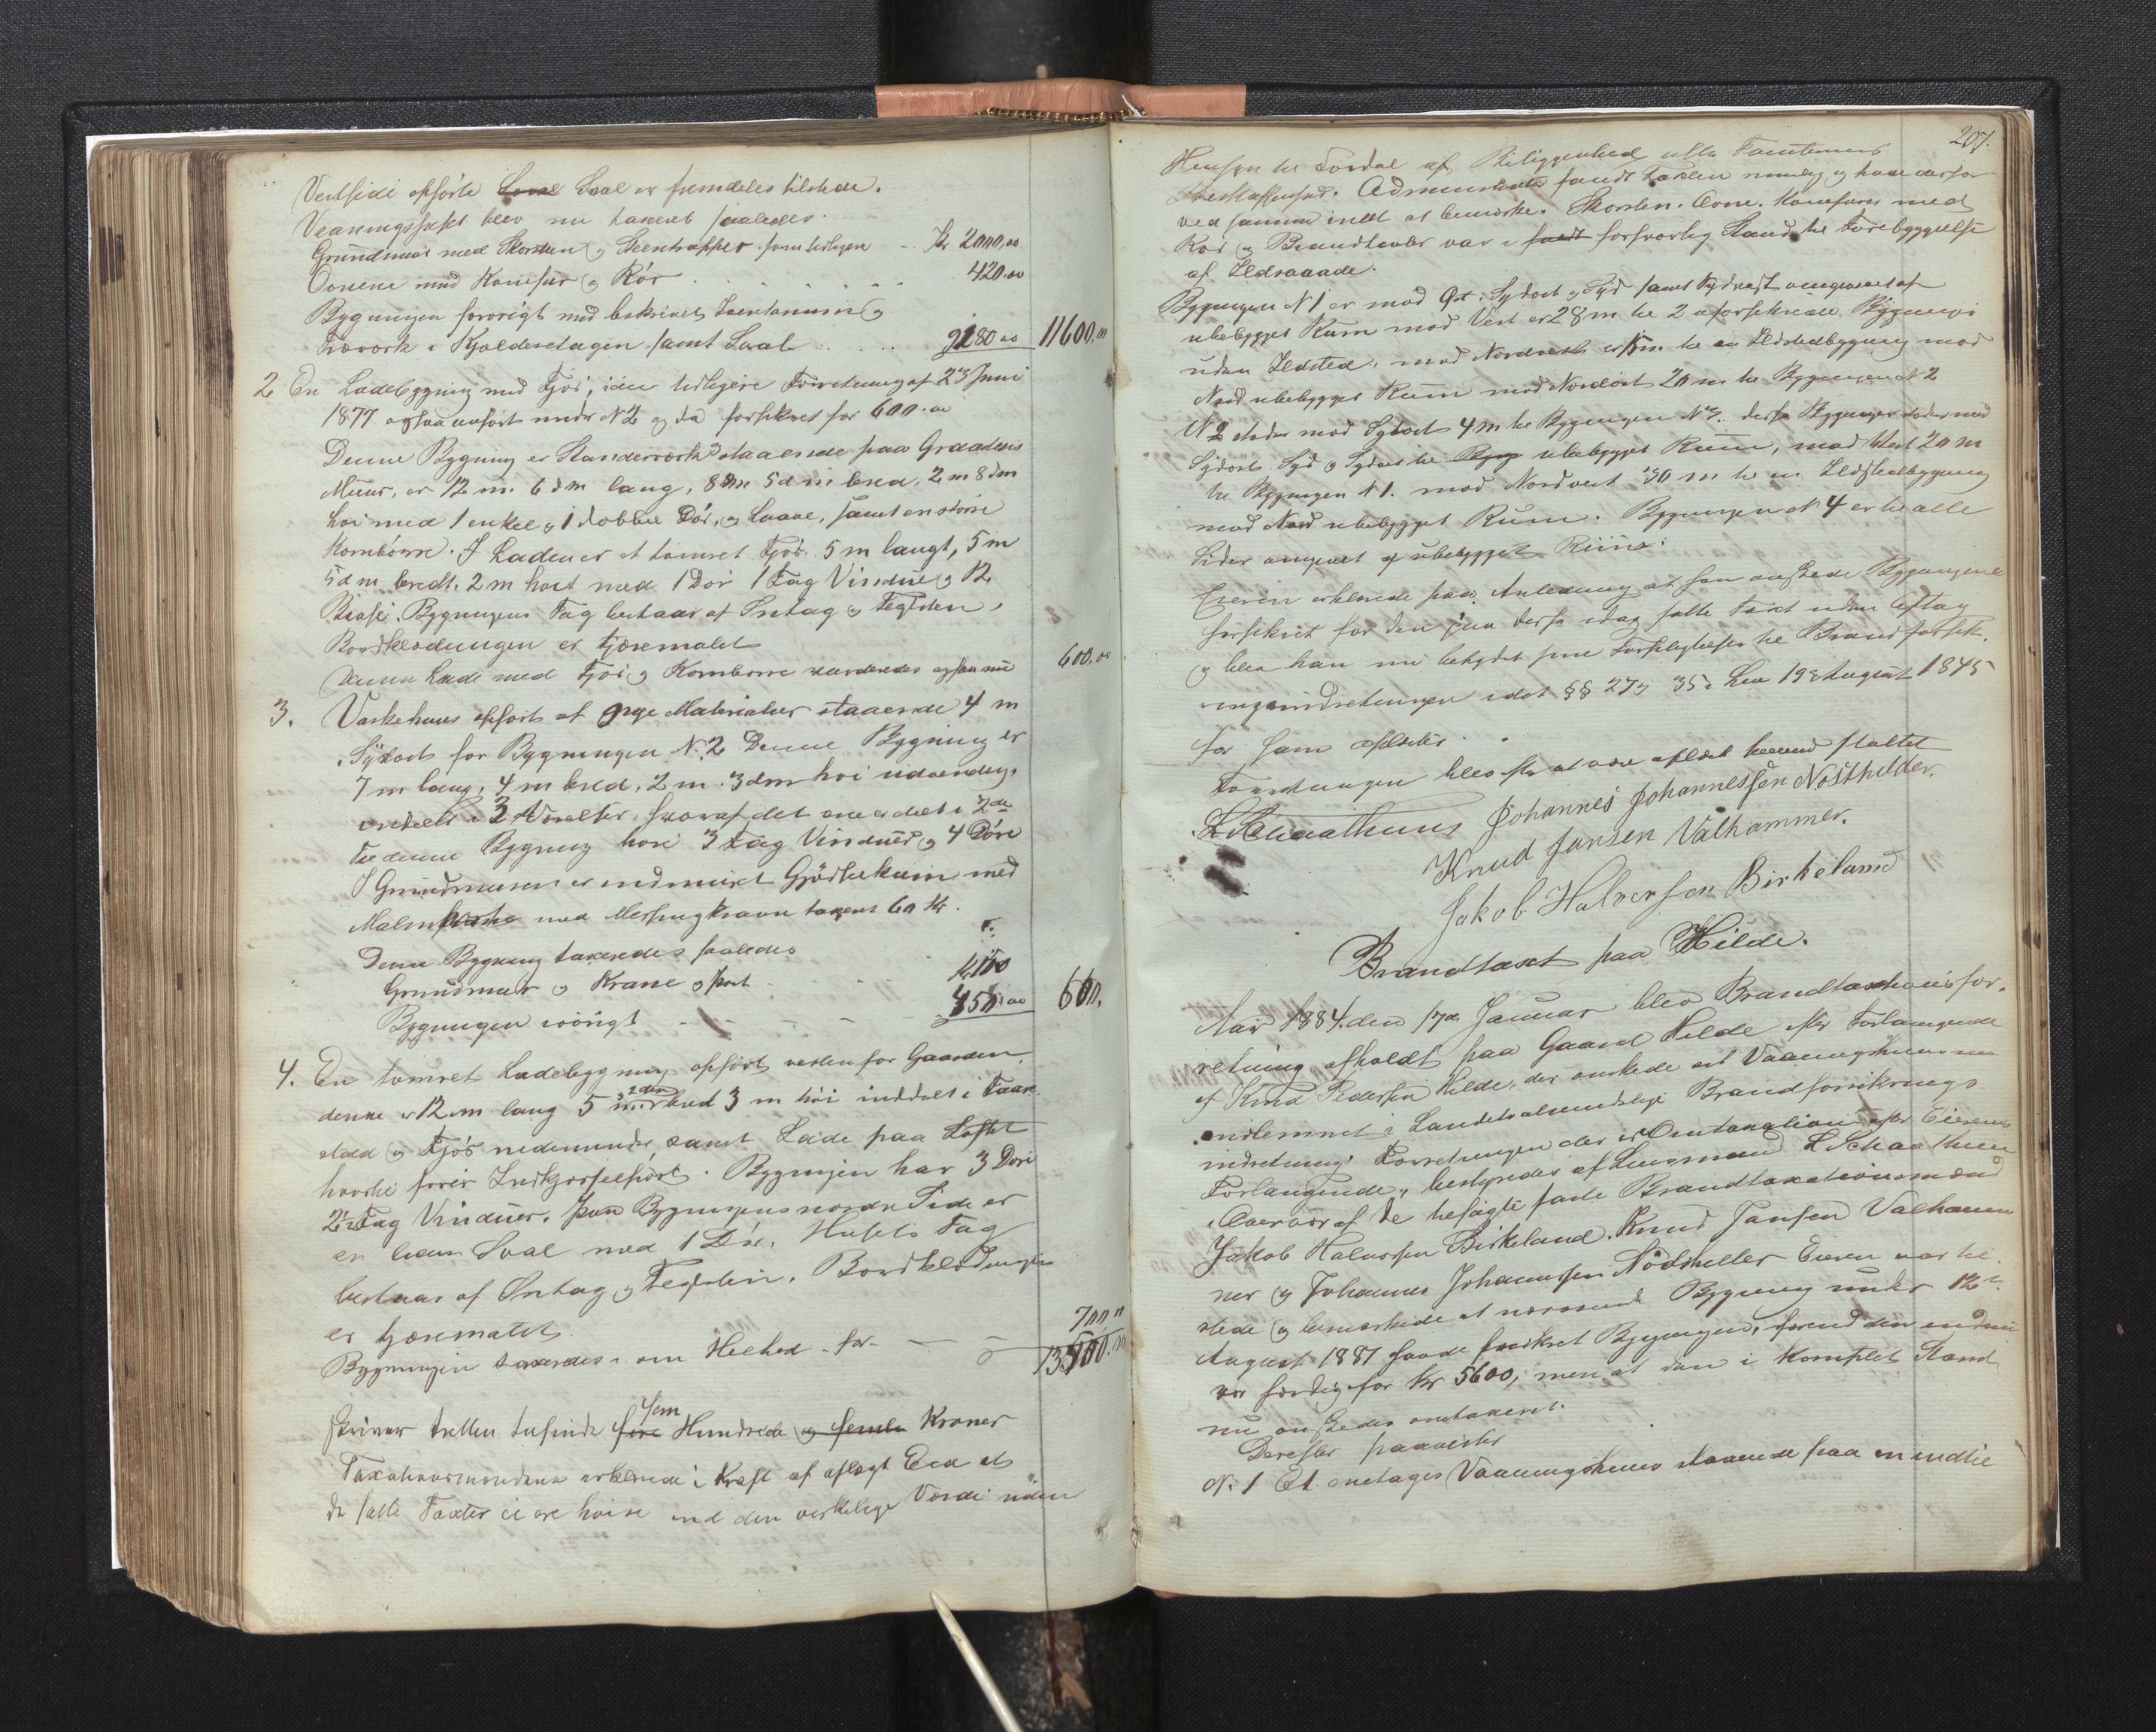 Vestside opførte Sval Sval er fremdeles tilstede.
Vaaningshuset blev nu taxeret saaledes.
Grundmuur med Skorsten og Steentrapper som tidligere Kr 2000,00
Ovnene med Komfur og Rør 420.00
Bygningen forøvrigt med beskrevet Inventarium og
Træværk i Kjælderetagen samt Sval 9180 00 11600,00
2. En Ladebygning med Fjøs, i den tidligere Forretning af 23 Juni
1877 ogsaa anført under N 2 og da forsikret for 600.00
Denne Bygning er Standerværk staaende paa Graasteens
Muur, er 12 m. 6 dm lang, 8 m 5 dm bred, 2 m 8 dm
høi med 1 enkel og 1 dobbel Dør, og Laave, samt en større
Kornbørre. I Laden er et tømret Fjøs. 5 m langt, 5 m
5 dm bredt. 2 m høit med 1 Dør 1 Fag Vindue og 12
Baase. Bygningens Tag bestaar af Ontag og Teglsten,
Bordklædningen er tjæremalet
Denne Lade med Fjøs og Kornborre vurderedes ogsaa nu 600.00
3. Vaskehuus opført af nye Materialier staaende 4 m
Sydost for Bygningen N. 2 Denne Bygning er
7 m lang, 4 m bred, 2 m. 3 dm høi udvendig,
inddelt i 2 Værelser, hvoraf det ene er delt i 2de
I denne Bygning have 3 Fag Vinduer og 4 Døre
I Grundmuren er indmuret Gjødselkum med
Malmpumpe med Messingkrane taxeret 60 Kr.
Denne Bygning taxeredes saaledes
Grundmuur og Krane og Port 150
Bygningen iøvrigt 450.00 600,
4. En tømret Ladebygning opført vesten for Gaarden,
denne er 12 m lang 5 m 2 dm bred 3 m høi inddelt i Faare
stald og Fjøs nedenunder samt Lade paa Loftet
hvortil fører Indkjørselsport. Bygningen har 3 Døre
2 Fag Vinduer. Paa Bygningens nordre Side er
en liden Sval med 1 Dør. Husets Tag
bestaar af Ontag og Teglsten. Bordklædningen
er tjæremalet.
Bygningen taxeredes i sin Heelhed for 700 "
13500.00
skriver tretten tusinde fire fem Hundrede og femten Kroner
Taxationsmændene erklærede i Kraft af aflagt Eed at
de satte Taxter ei ere høiere end den virkelige Værdi uden
207.
Hensyn til Fordel af Beliggenhed eller Tomtens
Beskaffenhed. Administrator fandt Taxten rimelig og havde derfor
ved samme intet at bemærke. Skorsten. Ovne. Komfuren med
Rør og Brandtavler var i forsvarlig Stand til Forebyggelse
af Ildsvaade.
Bygningen N 1 er mod Øst, Sydost og Syd samt Sydvest omgivet af
ubebygget Rum mod Vest er 28 m til 2 uforsikrede Bygninger
uden Ildsted, mod Nordvest er 15 m. til en Ildstedbygning mod
Nord ubebygget Rum mod Nordost 20 m til Bygningen N 2
N 2 støder mod Sydost 4 m til Bygningen N 3. disse Bygninger støder mod
Sydost Syd og Sydvest til ubebygget Rum, mod Vest 20 m
til Bygningen N 1. mod Nordvest 30 m til en Ildstedbygning
mod Nord ubebygget Rum. Bygningen N 4 er til alle
Sider omgivet af ubebygget Rum.
Eieren erklærede paa Anledning at han ønskede Bygningene
forsikret for den paa disse idag satte Taxt uden Aftag
og blev han nu betydet sine Forpligtelser til Brandforsik-
ringsindretningen idet §§ 27 og 35 i Lov 19de August 1845
for ham oplæstes.
Forretningen blev efter at være oplæst herved sluttet
L Schaathuus Johannes Johannessen Nøsthelder.
Knud Jansen Valhammer.
Jakob Halversen Birkeland
Brandtaxt paa Hilde.
Aar 1884. den 17de Januar blev Brandtaxtionsfor-
retning afholdt paa Gaard Hilde efter Forlangende
af Knud Pedersen Hilde, der ønskede sit Vaaningshuus nu
indlemmet i Landets almindelige Brandforsikrings
indretning. Forretningen der er Omtaxation efter Eierens
Forlangende, bestyredes af Lensmand L Schaathuun
i Overvær af de befalte faste Brandtaxationsmænd
Jakob Halversen Birkeland. Knud Jansen Valham-
mer og Johannes Johannesen Nødsthelder Eieren var til
stede og bemærkede at nærværende Bygning under 12te
August 1881 havde forsikret Bygningen, førend den endnu
var færdig for Kr 5600, men at den i komplet Stand
nu ønskedes omtaxeret.
Derefter paavistes
N. 1 Et. Vaaningshuus staaende paa en indtil